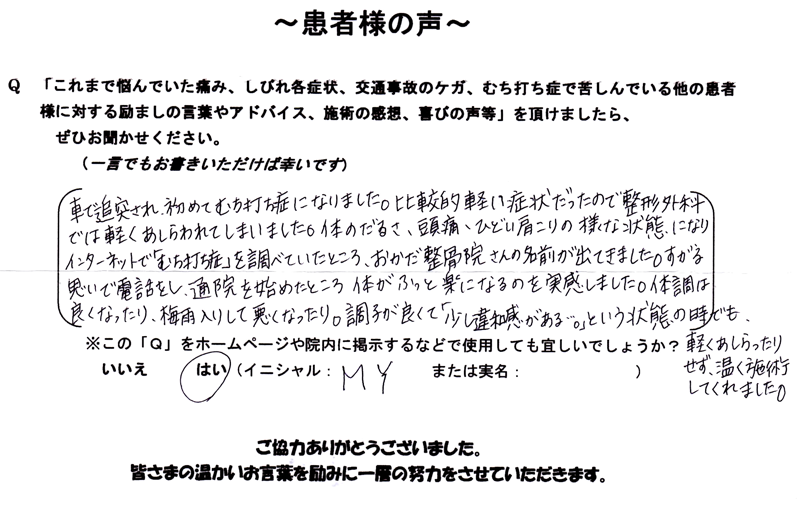 ～患者様の声～
Q 「これまで悩んでいた痛み、しびれ各症状、交通事故のケガ、むち打ち症で苦しんでいる他の患者
様に対する励ましの言葉やアドバイス、施術の感想、喜びの声等」を頂けましたら、
ぜひお聞かせください。
（一言でもお書きいただけば幸いです）
車で追突され、初めてむち打ち症になりました。比較的軽い症状だったので整形外科
では軽くあしらわれてしまいました。体のだるさ、頭痛、ひどい肩こりの様な状態になり
インターネットで「むち打ち症」を調べていたところ、おかだ整骨院さんの名前が出てきました。すがる
思いで電話をし、通院を始めたところ体がふっと楽になるのを実感しました。体調は
良くなったり、梅雨入りして悪くなったり。調子が良くて「少し違和感がある…。」という状態の時でも、
軽くあしらったり
せず、温く施術
してくれました。
※この「Q」をホームページや院内に掲示するなどで使用しても宜しいでしょうか？
いいえ はい（イニシャル： M Y または実名： ）
ご協力ありがとうございました。
皆さまの温かいお言葉を励みに一層の努力をさせていただきます。